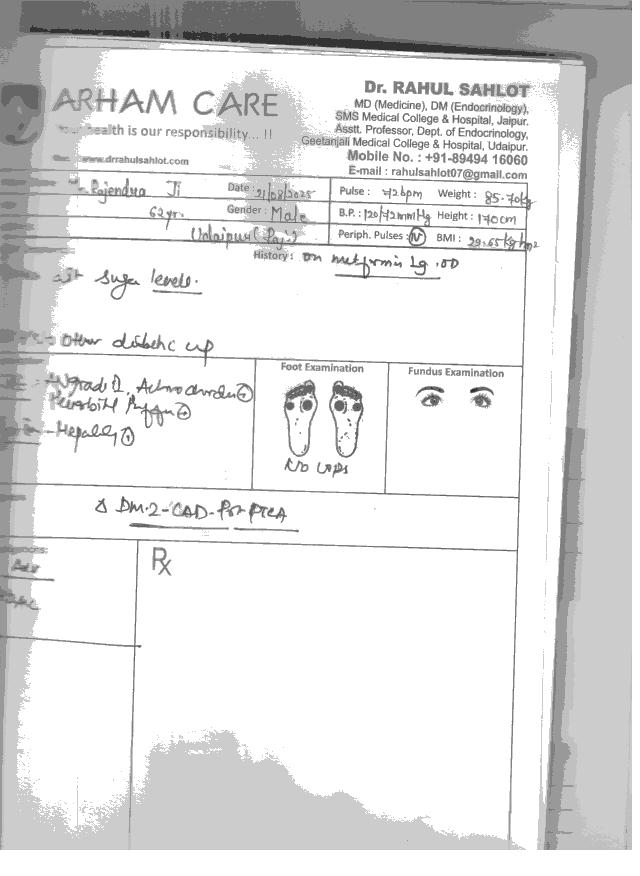 ARHAM CARE
health is our responsibility... !!
www.drrahulsahlot.com
Dr. RAHUL SAHLOT
MD (Medicine), DM (Endocrinology),
SMS Medical College & Hospital, Jaipur.
Asstt. Professor, Dept. of Endocrinology,
Geetanjali Medical College & Hospital, Udaipur.
Mobile No. : +91-89494 16060
E-mail : rahulsahlot07@gmail.com
Rajendra Ji Date : 21/08/2025 Pulse : 72 bpm Weight : 85.70kg
62yr. Gender : Male B.P. : 120/72mmHg Height : 170cm
Udaipur (Raj.) Periph. Pulses: N BMI : 29.65 kg/m2
History : on metformin 1g .OD
sugar levels.
Other diabetic
Foot Examination
Fundus Examination
No
Δ DM-2-CAD-Post PTCA
Rx